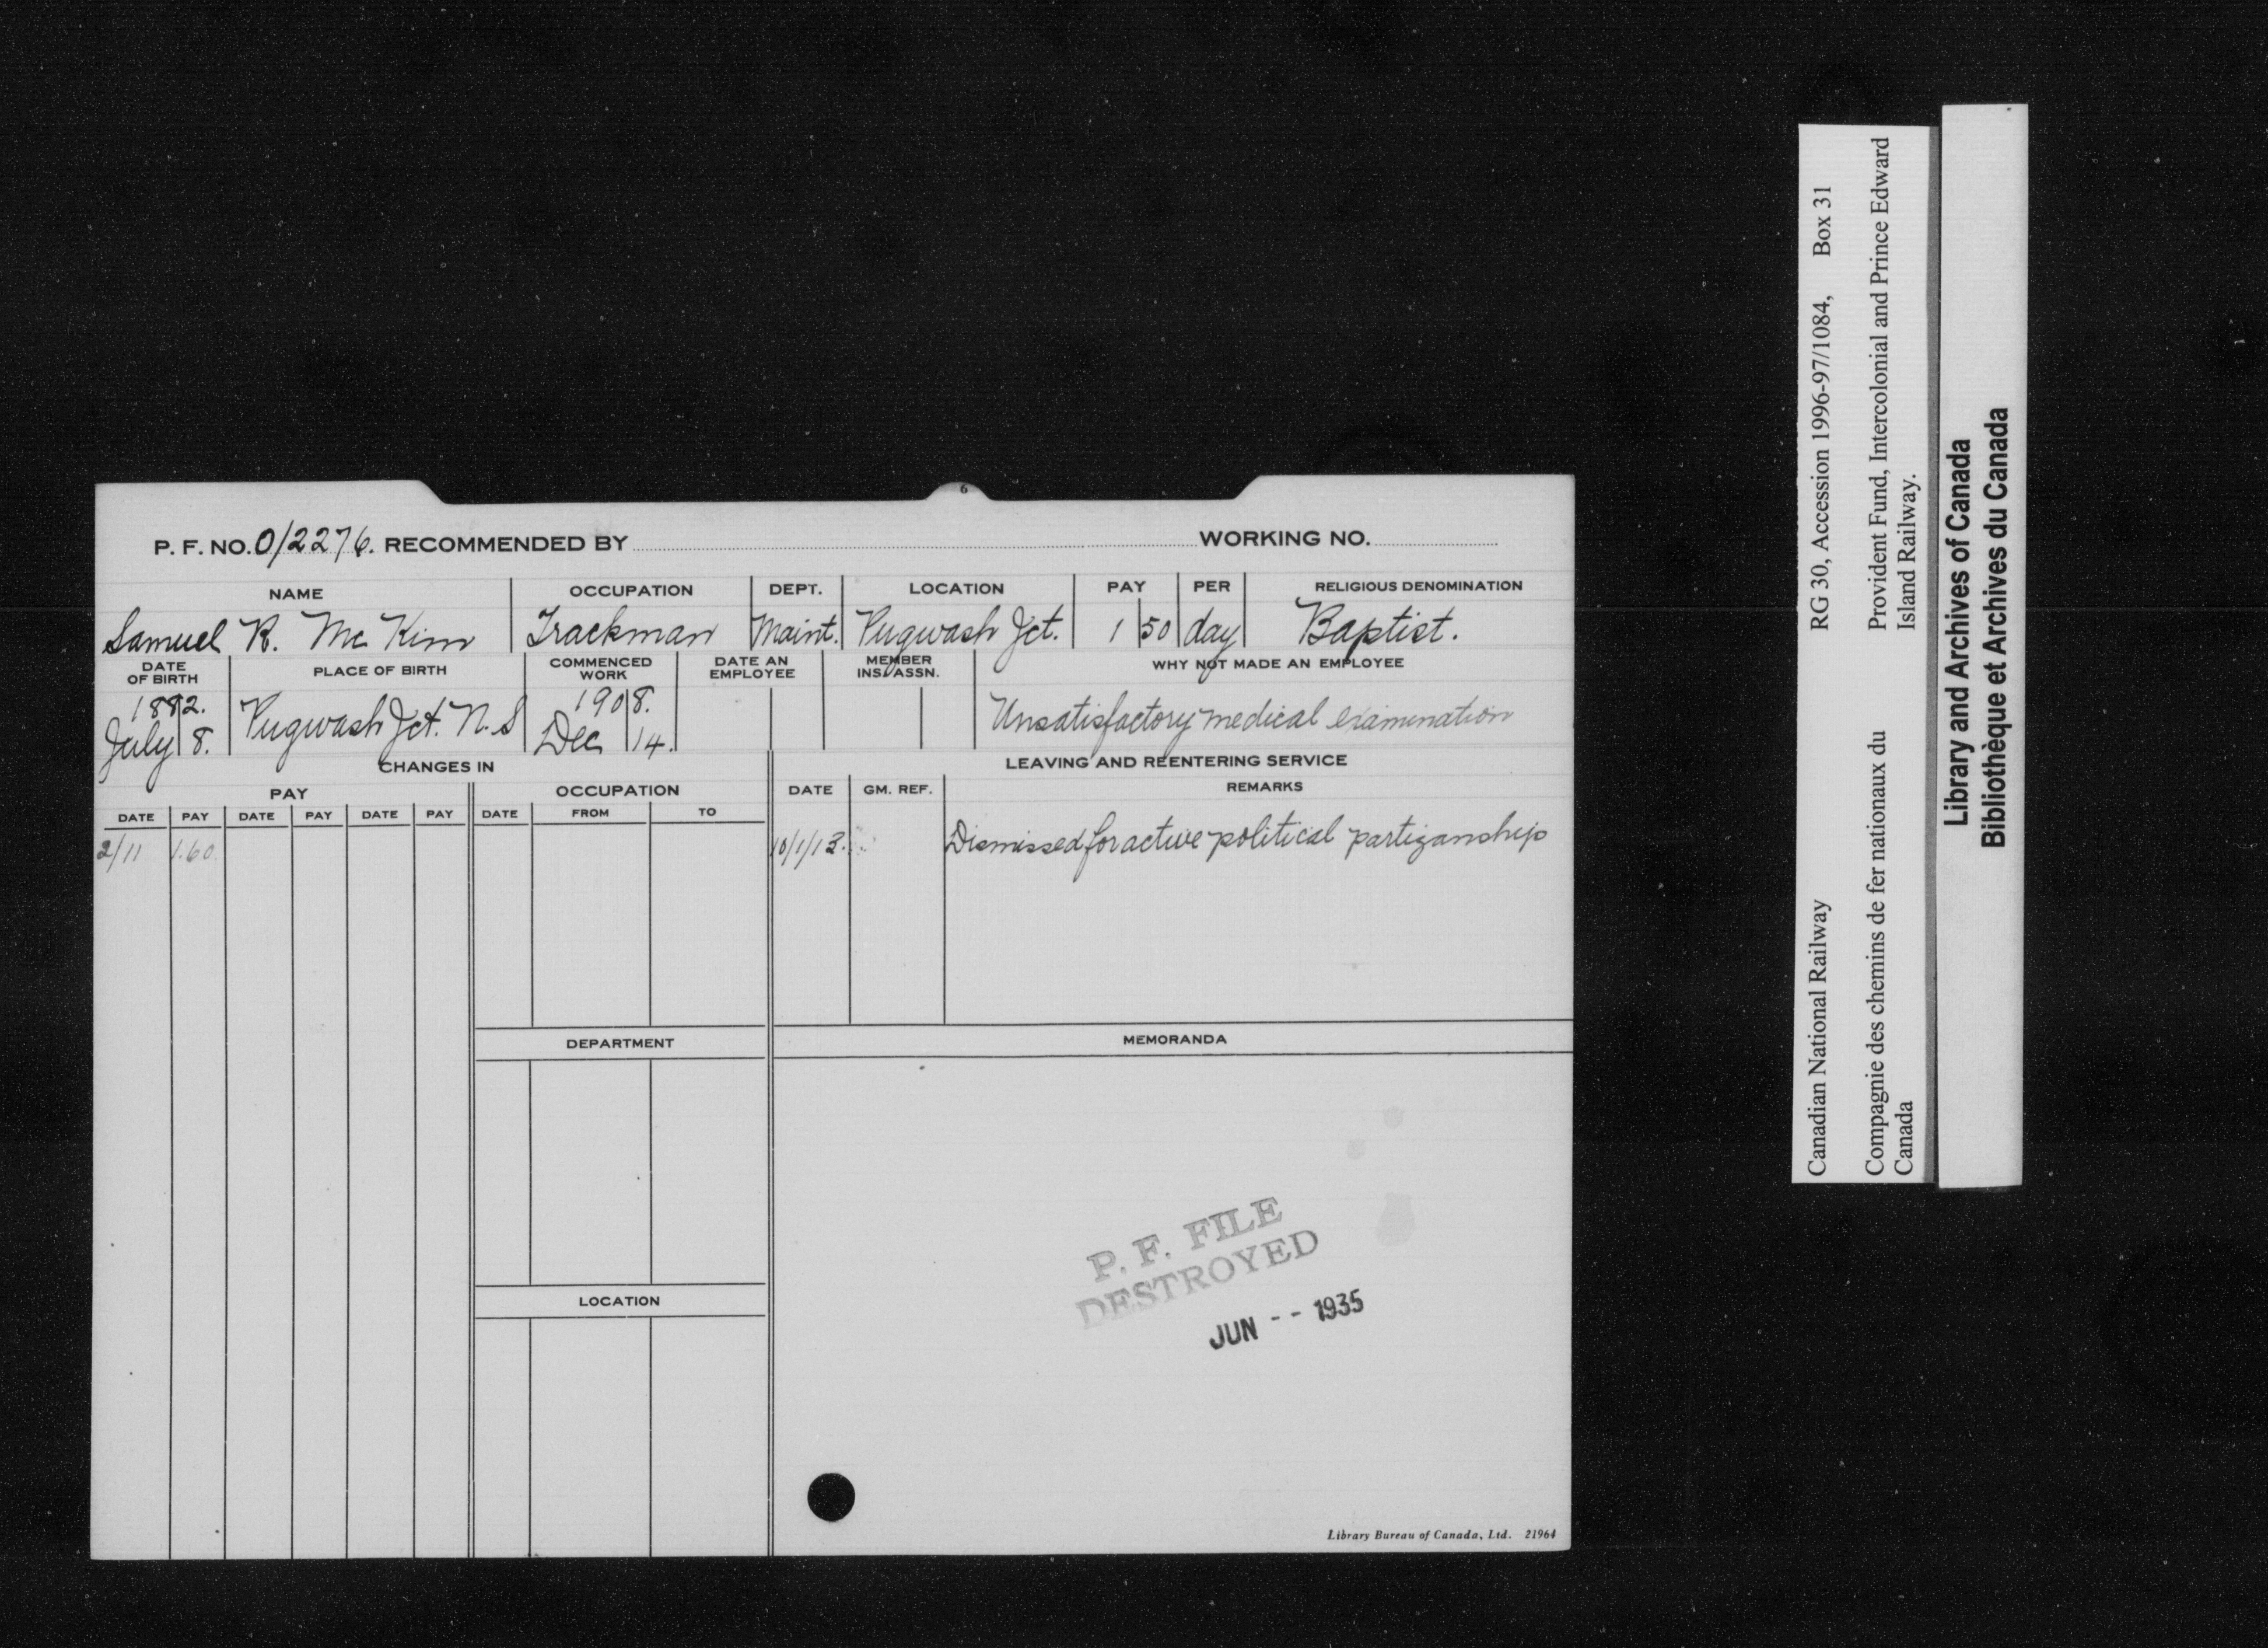 6
P. F. NO. 0/2276. RECOMMENDED BY WORKING NO.
NAME OCCUPATION DEPT. LOCATION PAY PER RELIGIOUS DENOMINATION
Samuel R. Mc Kim Trackman Maint. Pugwash Jct. 1 50 day Baptist.
DATE OF BIRTH PLACE OF BIRTH COMMENCED WORK DATE AN EMPLOYEE MEMBER INS. ASSN. WHY NOT MADE AN EMPLOYEE
1882. July 8. Pugwash Jct. N.S 1908. Dec 14. Unsatisfactory medical examination
CHANGES IN LEAVING AND REENTERING SERVICE
PAY OCCUPATION DATE GM. REF. REMARKS
DATE PAY DATE PAY DATE PAY DATE FROM TO
2/11 1.60 10/1/13. Dismissed for active political partizanship
DEPARTMENT MEMORANDA
P. F. FILE
DESTROYED
JUN -- 1935
LOCATION
Library Bureau of Canada, Ltd. 21964
Canadian National Railway RG 30, Accession 1996-97/1084, Box 31
Compagnie des chemins de fer nationaux du Canada
Provident Fund, Intercolonial and Prince Edward Island Railway.
Library and Archives of Canada
Bibliothèque et Archives du Canada